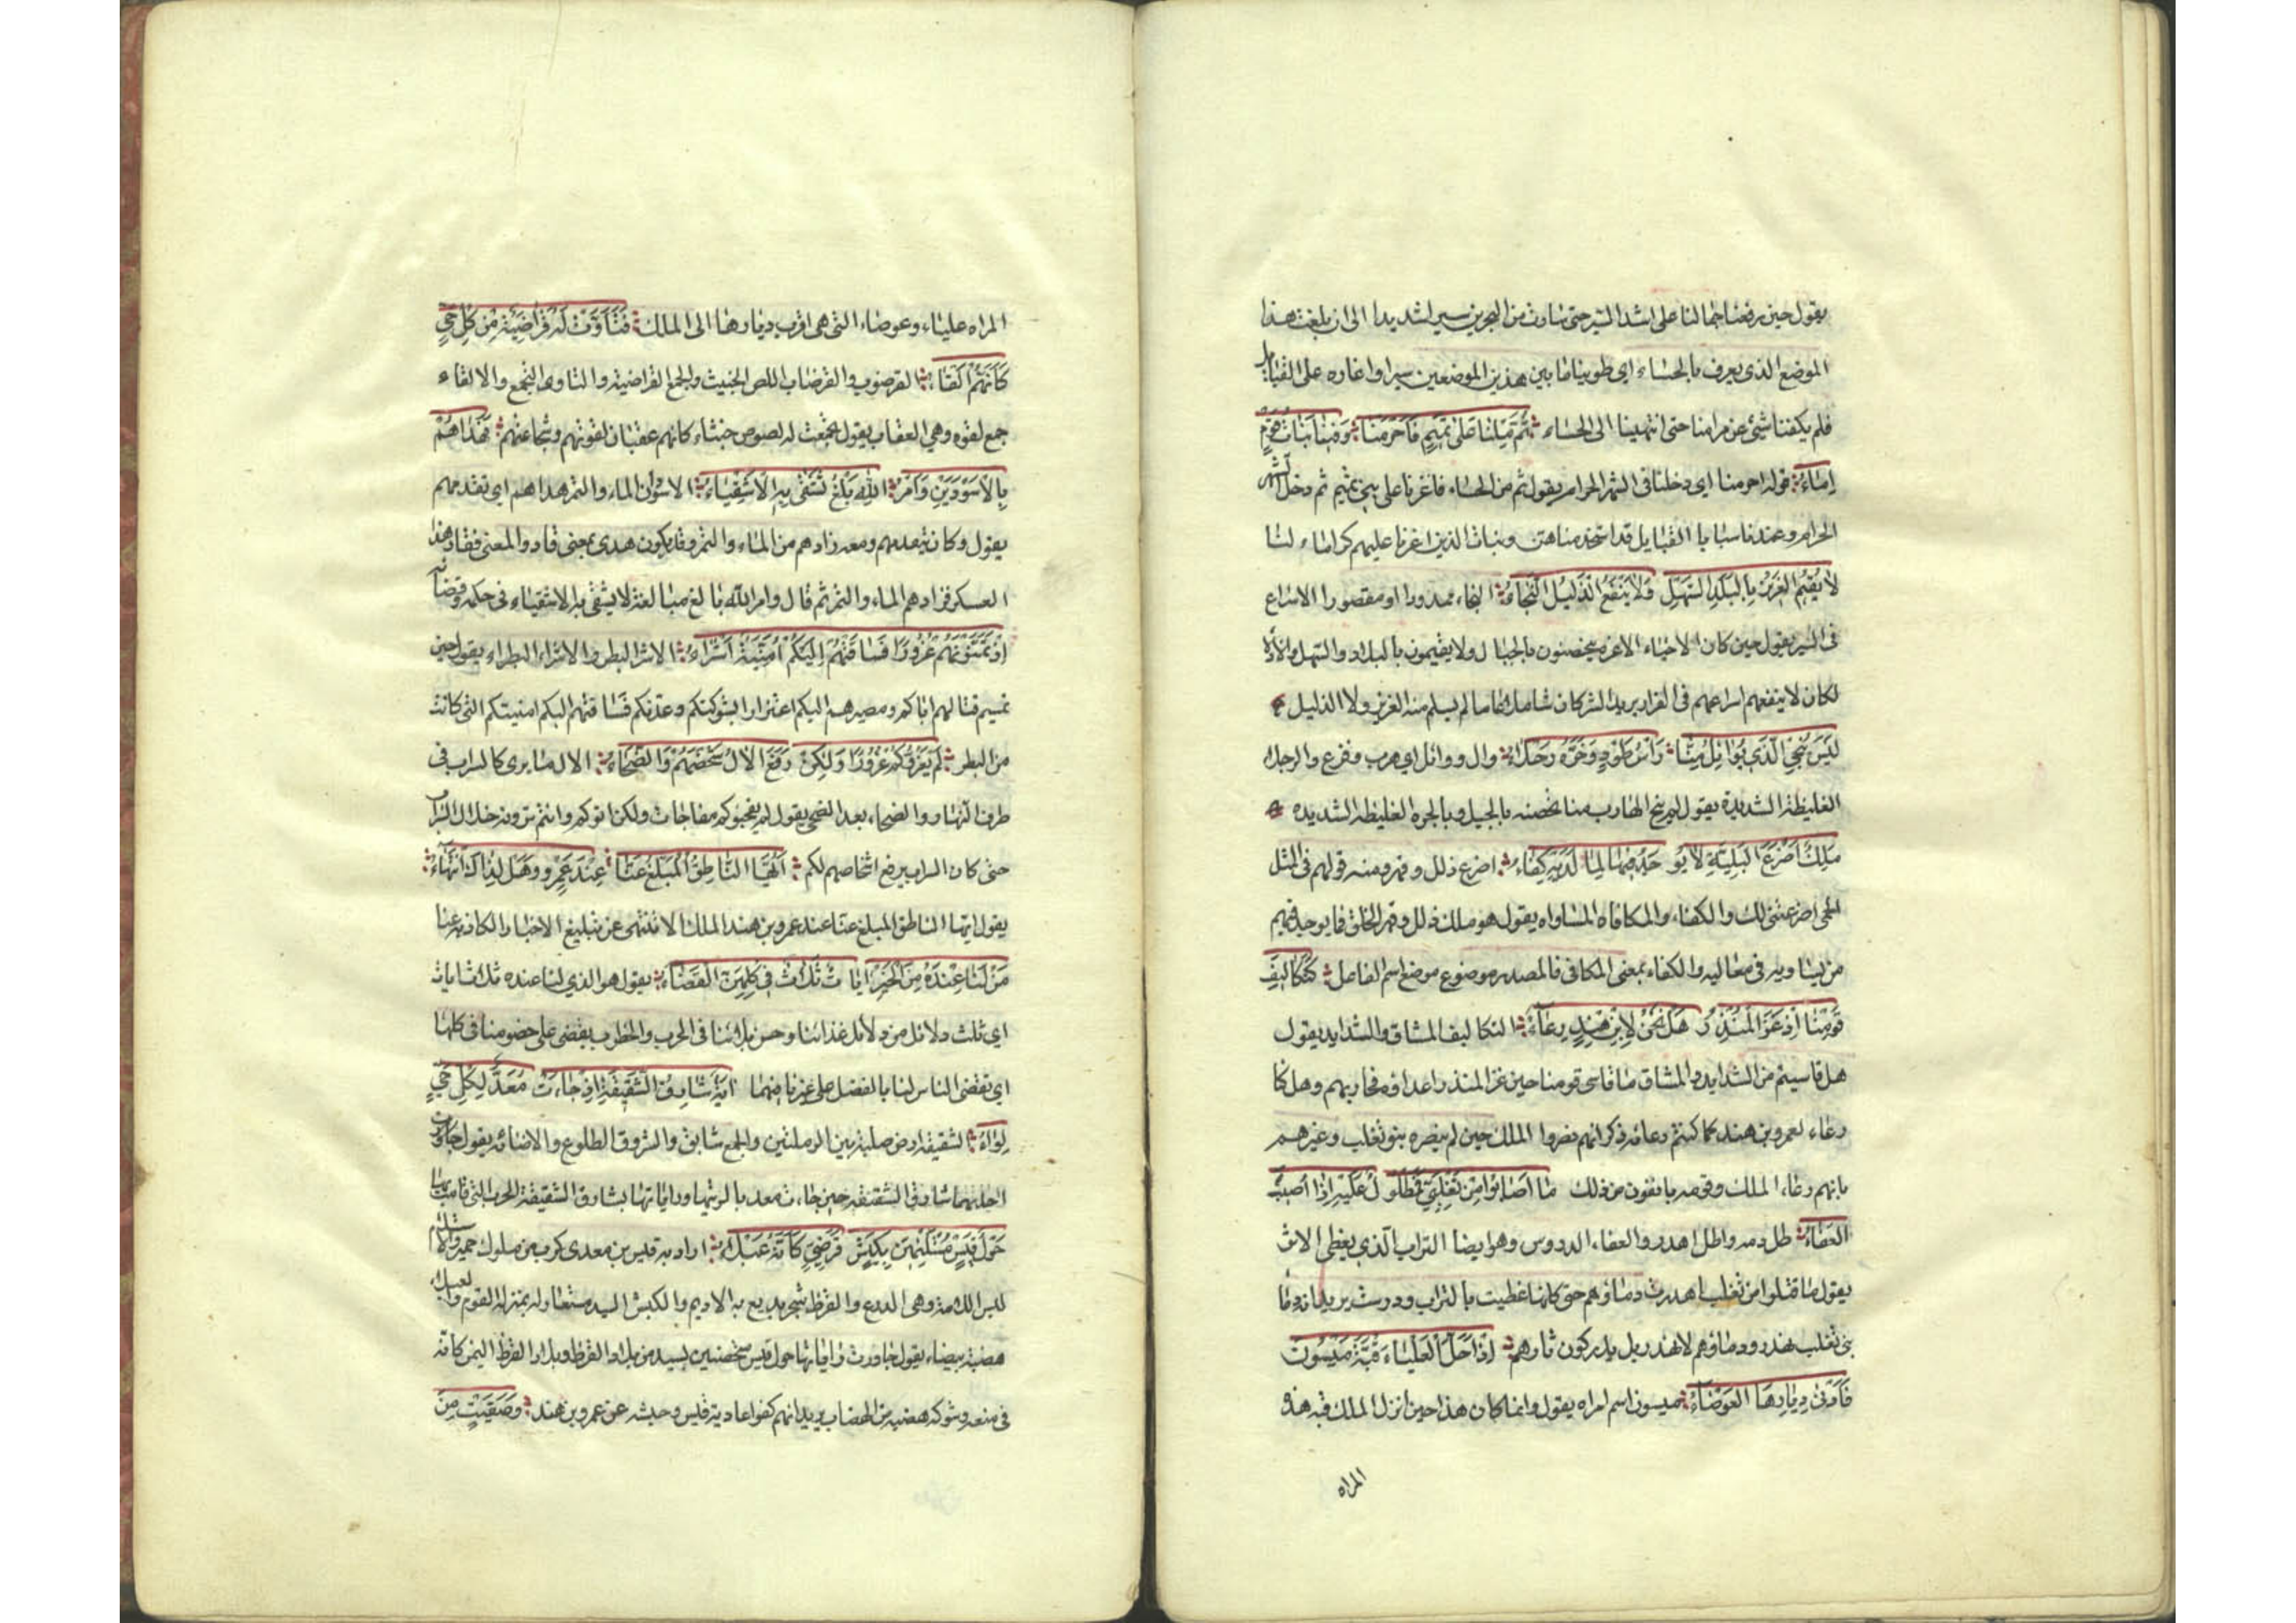 يقول حين رفعنا جمالنا على اشد السير حتى سارت من البحرين سيرا شديدا الى ان بلغت هذا
الموضع الذى يعرف بالحساء اي طوينا ما بين هذين الموضعين سيرا واغاره على القبايل
فلم يكفنا شئ عن مرامنا حتى انتهينا الى الحساء ثُمَّ مِلْنَا عَلىٰ تَمِيمٍ فَأَحْرَمْنَا وَفِينَا بَنَاتُ قَوْمٍ
اِمَاءُ قوله احرمنا اي دخلنا فى الشهر الحرام يقول ثم من الحساء فاغرنا على بنى تميم ثم دخل الشهر
الحرام وعندنا سبايا القبايل قد استخدمناهن وبنات الذين اغرنا عليهم كن اماء لنا
لَا يُقِيمُ العَزِيزُ بِالبَلَدِ السَّهْلِ وَلَا يَنْفَعُ الذَلِيلَ النَّجَاءُ النجاء ممدودا او مقصورا الاسراع
فى السير يقول حين كان الاحياء الاعزه يتحصنون بالجبال ولا يقيمون بالبلاد السهل والاذلاء
لكان لا ينفعهم اسراعهم فى الفرار يريد الشر كان شاملا عاما لم يسلم منه العزيز ولا الذليل
لَيْسَ يُنْجِي الَّذِي يُوَائِلُ مِنَّا رَأْسُ طَوْدٍ وَحَرَّةٌ رَجْلَاءُ وال ووائل اي هرب وفزع والرجلاء
الغليظة الشديدة يقول لم ينج الهارب منا تحصنه بالجبل وبالحرة الغليظه الشديده
مَلِكٌ اَضْرَعَ البَرِيَّةَ لَا يُو جَدُ فِيهَا لِمَا لَدَيْهِ كِفَاءُ اضرع ذلل وقهر ومنه قولهم فى المثل
الحمى اضرعتنى لك والكفاء والمكافاه المساواه يقول هو ملك ذلل وقهر الخلق فما يوجد فيهم
من يساويه فى معاليه والكفاء بمعنى المكافى فالمصدر موضوع موضع اسم الفاعل كَتَكَالِيفِ
قَوْمِنَا اِذْ غَزَا المُنْذِرُ هَلْ نَحْنُ لِابْنِ هِنْدٍ رِعَاءُ التكاليف المشاق والشدايد يقول
هل قاسيتم من الشدايد والمشاق ما قاسى قومنا حين غزا المنذر اعداؤه فحاربهم وهل كنا
رعاء لعمرو بن هند كما كنتم رعائه ذكر انهم نصروا الملك حين لم ينصره بنو تغلب وغيرهم
بانهم رعاء الملك وقومه يانفون من ذلك مَا اَصَابُوا مِنْ تَغْلِبِيٍّ فَمَطْلُو لٌ عَلَيْهِ اِذَا اُصِيبَ
العَفَاءُ طل دمه واطل اهدر والعفاء الدروس وهو ايضا التراب الذي يغطى الاثر
يقول ما قتلوا من تغلب اهدرت دماؤهم حتى كانها غطيت بالتراب ودرست يريد ان دما
بنى تغلب تهدر ودماؤهم لا تهدر بل يدركون ثارهم اِذْ اَحَلَّ العَلْيَاءَ قُبَّةَ مَيْسُونَ
فَاَدْنىٰ دِيَارِهَا العَوْصَاءُ ميسون اسم امراه يقول وانما كان هذا حين انزل الملك قبه هذه
المراه
المراه علياء وعوصاء التى هى اقرب ديارها الى الملك فَتَأَوَّتْ لَهُ قَرَاضِبَةٌ مِنْ كُلِّ حَيٍّ
كَاَنَّهُمْ اَلْقَاءُ القرضوب والقرضاب اللص الخبيث والجمع القراضبة والتاوى التجمع والالقاء
جمع لقوه وهي العقاب يقول تجمعت له لصوص خبثاء كانهم عقبان لقوتهم وشجاعتهم فَهَدَاهُمْ
بِالاَسْوَدَيْنِ وَاَمْرُ اللّٰهِ بَلْغٌ تَشْقَىٰ بِهِ الْاَشْقِيَاءُ الاسودان الماء والتمر هداهم اي تقدمهم
يقول وكان يتقدمهم ومعه زادهم من الماء والتمر وقد يكون هدى بمعنى قاد والمعنى فقاد هذا
العسكر فزادهم الماء والتمر ثم قال وامر الله بالغ مبالغة لا يشقى به الا اشقياء فى حكمه وقضائه
اِذْ تَمَنَّوْنَهُمْ غُرُورًا فَسَاقَتْهُمْ اِلَيْكُمْ اُمْنِيَّةٌ اَشْرَاءُ الاشر البطر والاشراء البطراء يقول حين
تمنيتم قتالهم اياكم ومصيرهم اليكم اغترارا بشوكتكم وعدتكم فساقتهم اليكم امنيتكم التى كانت
من البطر لَمْ يَغُرُّوكُمْ غُرُورًا وَلٰكِنْ رَفَعَ الاٰلُ شَخْصَهُمْ وَالضَّحَاءُ الال ما يرى كالسراب فى
طرف النهار والضحاء بعد الضحى يقول لم يفجئوكم مفاجات ولكن اتوكم وانتم ترونه خلال السراب
حتى كان السراب يرفع اشخاصهم لكم اَيُّهَا النَّاطِقُ الْمُبَلِّغُ عَنَّا عِنْدَ عَمْرٍو وَهَلْ لِذَاكَ انْتِهَاءُ
يقول ايها الناطق المبلغ عنا عند عمرو بن هند الملك الا تنتهى عن تبليغ الاخبار الكاذبه عنا
مَنْ لَنَا عِنْدَهُ مِنَ الْخَيْرِ اٰيَا تٌ ثَلَاثٌ فِى كُلِّهِنَّ القَضَاءُ يقول هو الذي لنا عنده ثلاث ايات
اي ثلث دلائل من دلائل غنائنا وحسن بلائنا فى الحرب والخطوب يقضى على خصومنا فى كلها
اي تقضى الناس لنا بالفضل على غيرنا فيها اٰيَةٌ شَارِقُ الشَّقِيقَةِ اِذْ جَاءَتْ مَعَدٌّ لِكُلِّ حَيٍّ
لِوَاءُ الشقيقه ارض صلبة بين الرملتين والجمع شقايق والشروق الطلوع والاضائه يقول
احديهما شارق الشقيقه حين جاءت معد بالويتها وراياتها بشارق الشقيقة الحرب التى قامت بها
حَوْلَ قَيْسٍ مُسْتَلْئِمِينَ بِكَبْشٍ قَرَظِيٍّ كَاَنَّهُ عَبْلَاءُ اراد به قيس بن معدى كرب من ملوك حمير والاستلام
لبس اللامة وهى الدرع والقرظ شجر يدبغ به الاديم والكبش السيد مستعار له بمنزلة القوم والعبلاء
هضبة بيضاء يقول جاورت راياتها حول قيس متحصنين بسيد من بلاد القرظ وبلاد القرظ اليمن كانه
فى منعه وشوكه هضبه من الهضاب يريد انهم كفوا عادية قيس وجيشه عن عمرو بن هند وَصَتِيتٍ مِنَ